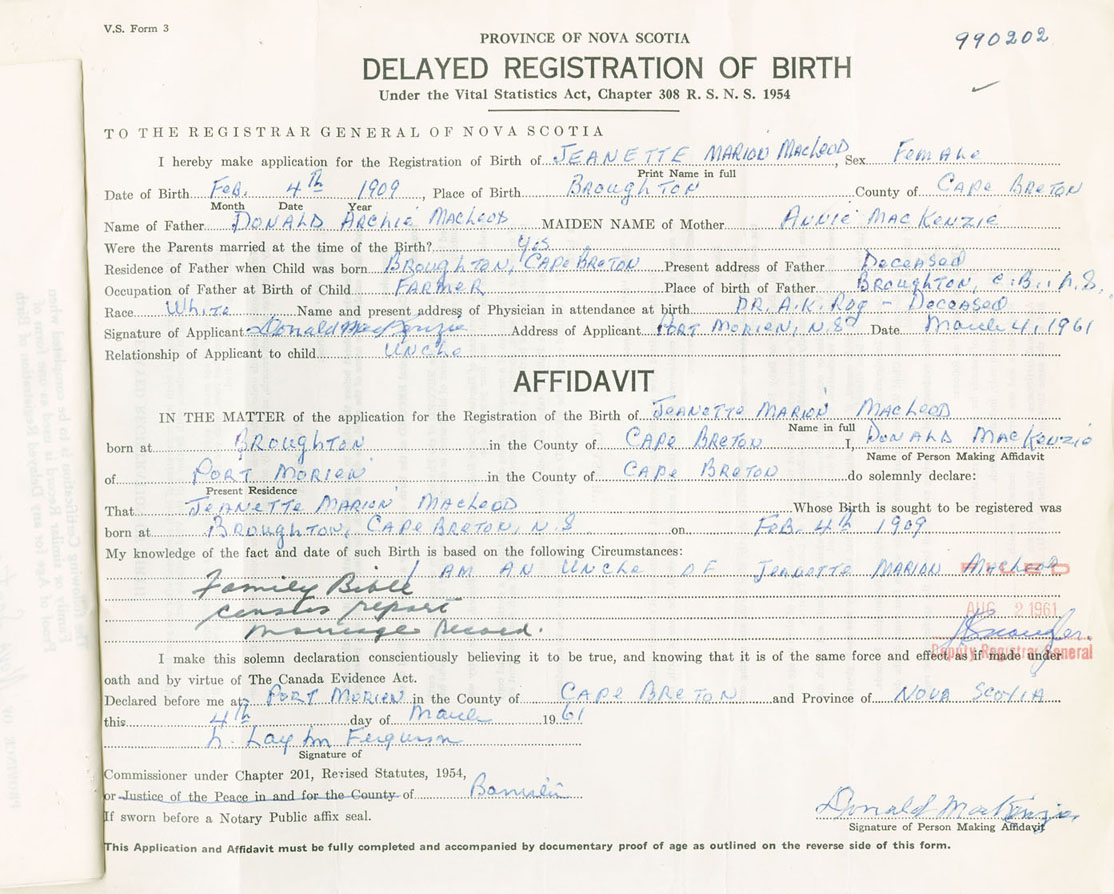 V.S. Form 3
990202
PROVINCE OF NOVA SCOTIA
DELAYED REGISTRATION OF BIRTH
Under the Vital Statistics Act, Chapter 308 R. S. N. S. 1954
TO THE REGISTRAR GENERAL OF NOVA SCOTIA
I hereby make application for the Registration of Birth of JEANETTE MARION MACLEOD, Sex Female
Print Name in full
Date of Birth Feb. 4th 1909, Place of Birth BROUGHTON County of CAPE BRETON
Month Date Year
Name of Father DONALD ARCHIE MACLEOD MAIDEN NAME of Mother ANNIE MACKENZIE
Were the Parents married at the time of the Birth? Yes
Residence of Father when Child was born BROUGHTON, CAPE BRETON Present address of Father Deceased
Occupation of Father at Birth of Child FARMER Place of birth of Father BROUGHTON, C.B., N.S.,
Race White Name and present address of Physician in attendance at birth DR. A.K. Roy - Deceased
Signature of Applicant Donald MacKenzie Address of Applicant PORT MORIEN, N.S. Date March 4, 1961
Relationship of Applicant to child Uncle
AFFIDAVIT
IN THE MATTER of the application for the Registration of the Birth of JEANETTE MARION MACLEOD
Name in full
born at BROUGHTON in the County of CAPE BRETON I, DONALD MACKENZIE
Name of Person Making Affidavit
of PORT MORIEN in the County of CAPE BRETON do solemnly declare:
Present Residence
That JEANETTE MARION MACLEOD Whose Birth is sought to be registered was
born at BROUGHTON, CAPE BRETON, N.S on FEB. 4th 1909
My knowledge of the fact and date of such Birth is based on the following Circumstances:
I AM AN UNCLE OF JEANETTE MARION MACLEOD
FILED
Family Bible
census report
AUG 2 1961
marriage record.
Deputy Registrar General
I make this solemn declaration conscientiously believing it to be true, and knowing that it is of the same force and effect as if made under
oath and by virtue of The Canada Evidence Act.
Declared before me at PORT MORIEN in the County of CAPE BRETON and Province of NOVA SCOTIA
this 4th day of March 1961
Ferguson
Signature of
Commissioner under Chapter 201, Revised Statutes, 1954,
or Justice of the Peace in and for the County of
If sworn before a Notary Public affix seal.
Donald MacKenzie
Signature of Person Making Affidavit
This Application and Affidavit must be fully completed and accompanied by documentary proof of age as outlined on the reverse side of this form.